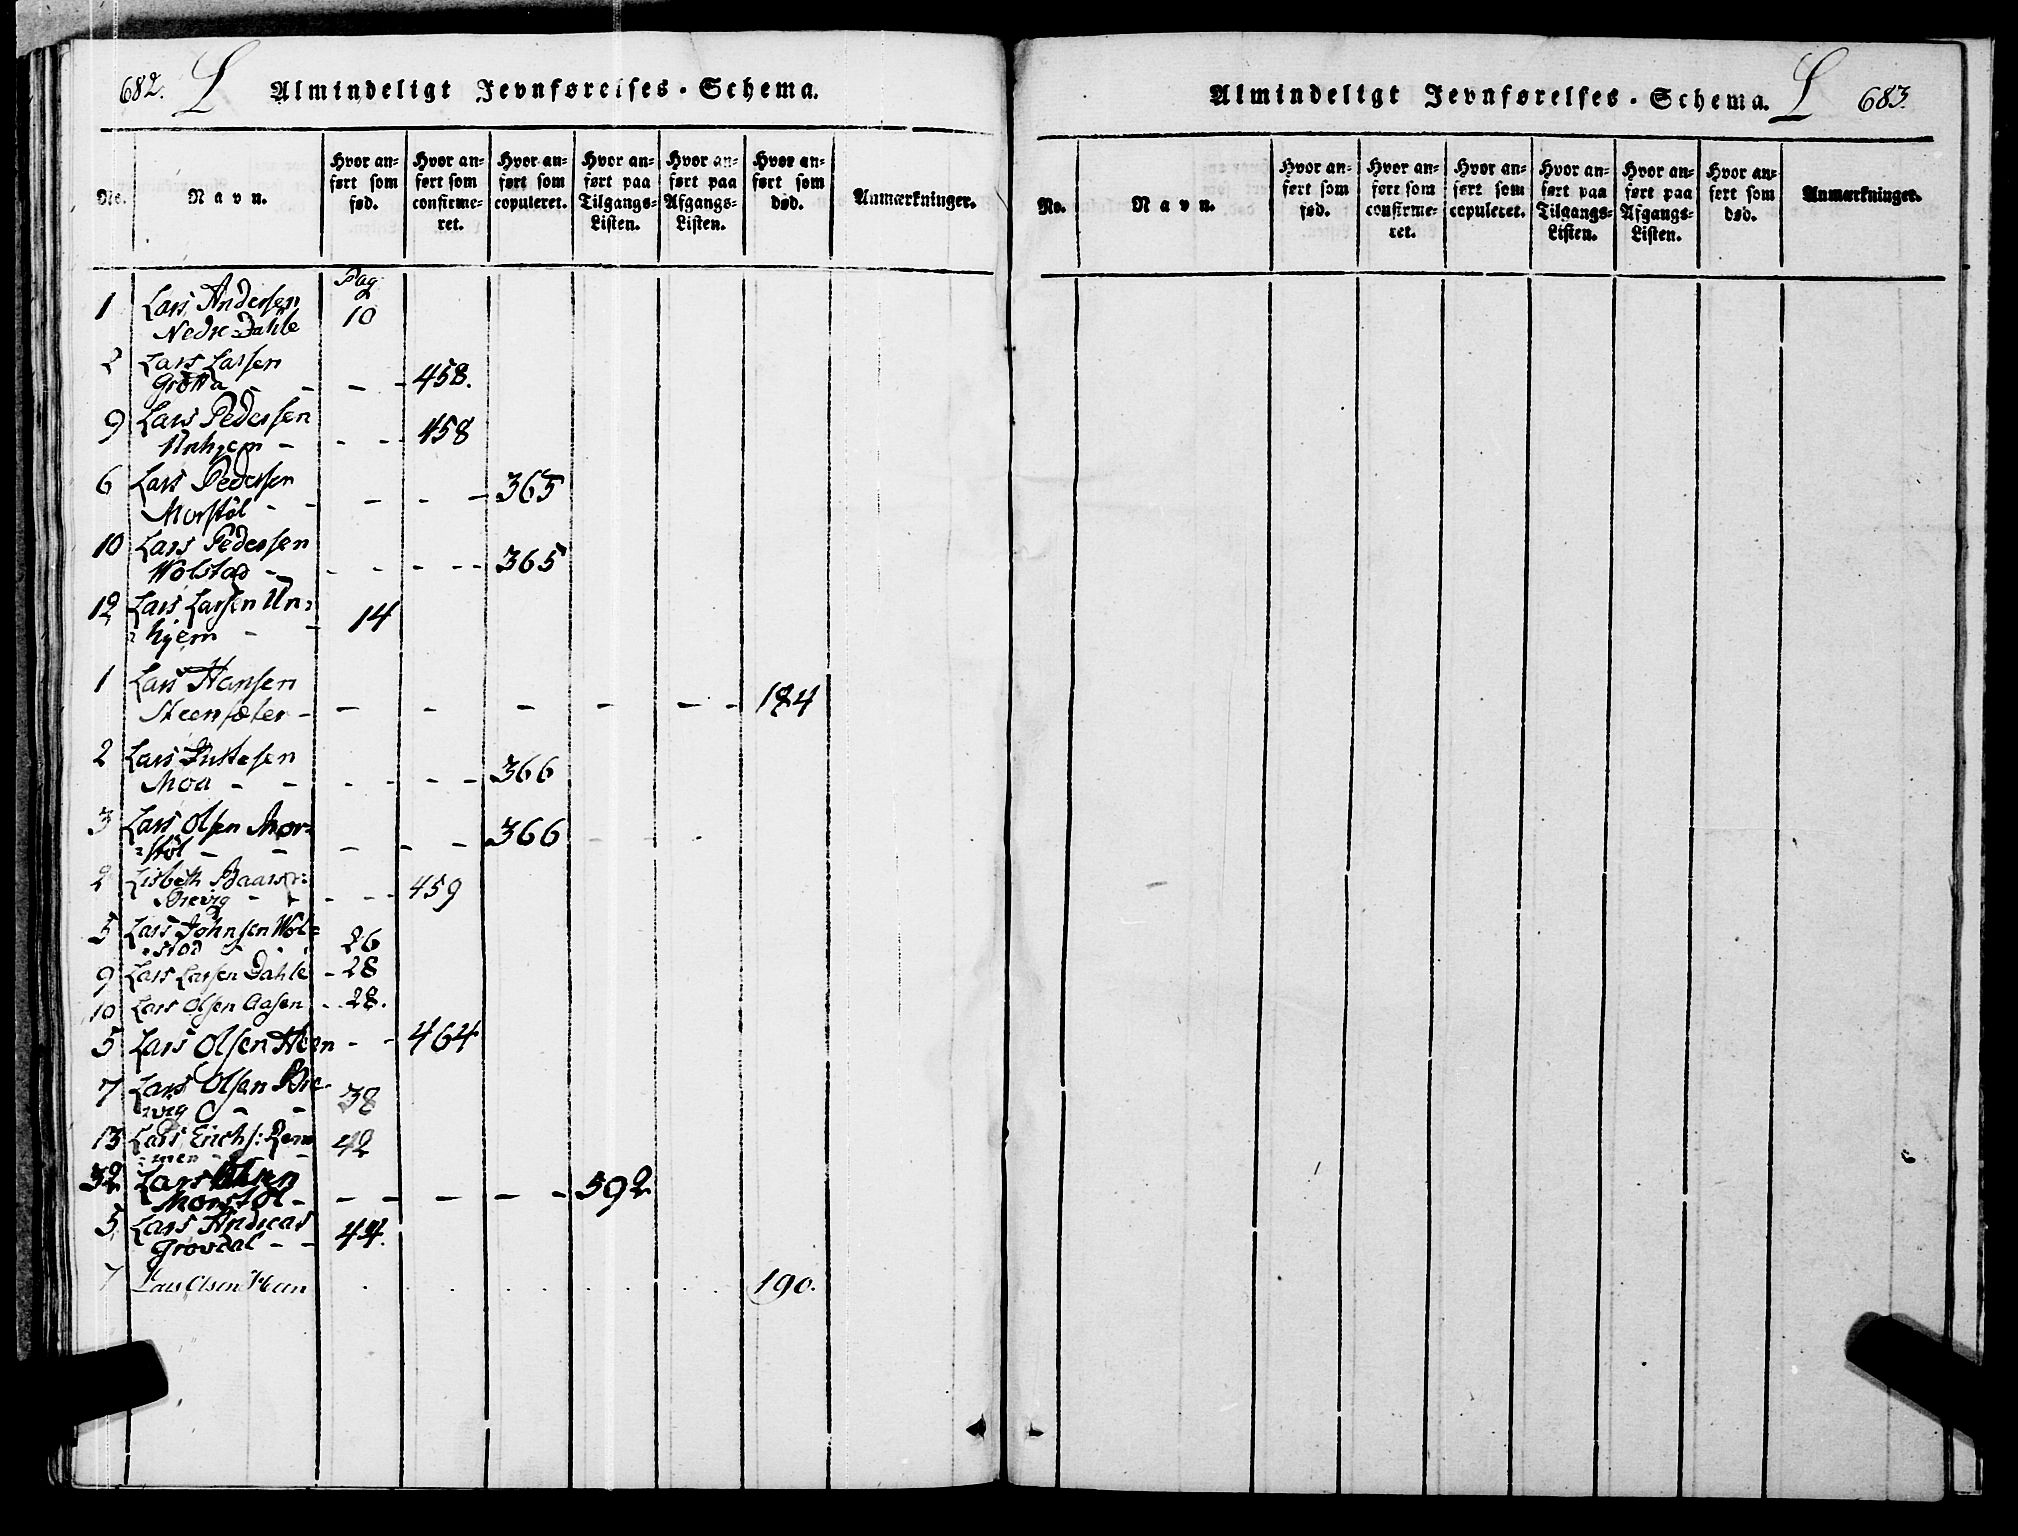 682. L Almindeligt Jevnførelses-Schema.
No. Navn. Hvor anført som fød. Hvor anført som confirmeret. Hvor anført som copuleret. Hvor anført paa Tilgangs-Listen. Hvor anført paa Afgangs-Listen. Hvor anført som død. Anmærkninger.
Pag
1 Lars Andersen
Nedre Dahle 10
2 Lars Larsen
Grötta - - - - 458.
9 Lars Pedersen
Unhjem - - - 458
6 Lars Pedersen
Morstöl - - - - - 365
10 Lars Pedersen
Wolstad - - - - - - 365
12 Lars Larsen Un=
=hjem - - 14
1 Lars Hansen
Steensæter - - - - - - - 184
2 Lars Justesen
Moa - - - - - - 366
3 Lars Olsen Mor=
=stöl - - - - - 366
2 Lisbeth
Brevig - - - - - 459
5 Lars Johnsen Wol=
=stad - - 26
9 Lars Larsen Dahle - 28
10 Lars Olsen Aasen - - 28.
5 Lars Olsen Hoen - - 464
7 Lars Olsen Bre-
=vig - - 38
13 Lars Erichs: Rem
=men - - 42
32 Lars Olsen
Morstöl - - - - - - 592
5 Lars Andreas
Grövdal - - 44.
7 Lars Olsen Hoen . . . . . . . . . 190.
Almindeligt Jevnførelses-Schema. L 683.
No. Navn. Hvor anført som fød. Hvor anført som confirmeret. Hvor anført som copuleret. Hvor anført paa Tilgangs-Listen. Hvor anført paa Afgangs-Listen. Hvor anført som død. Anmærkninger.